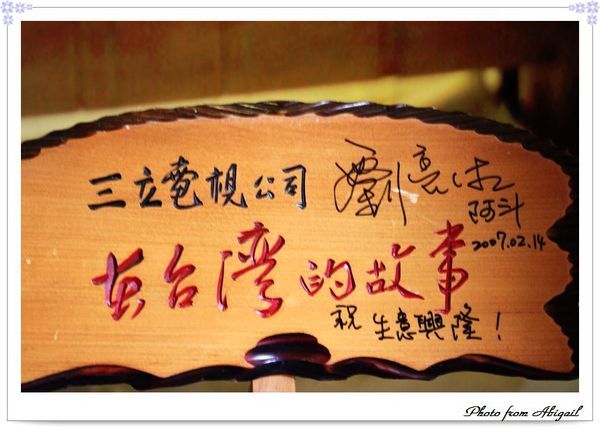 三立電視公司 劉亮佐
阿斗
2007.02.14
在台湾的故事
祝 生意興隆！
Photo from Abigail